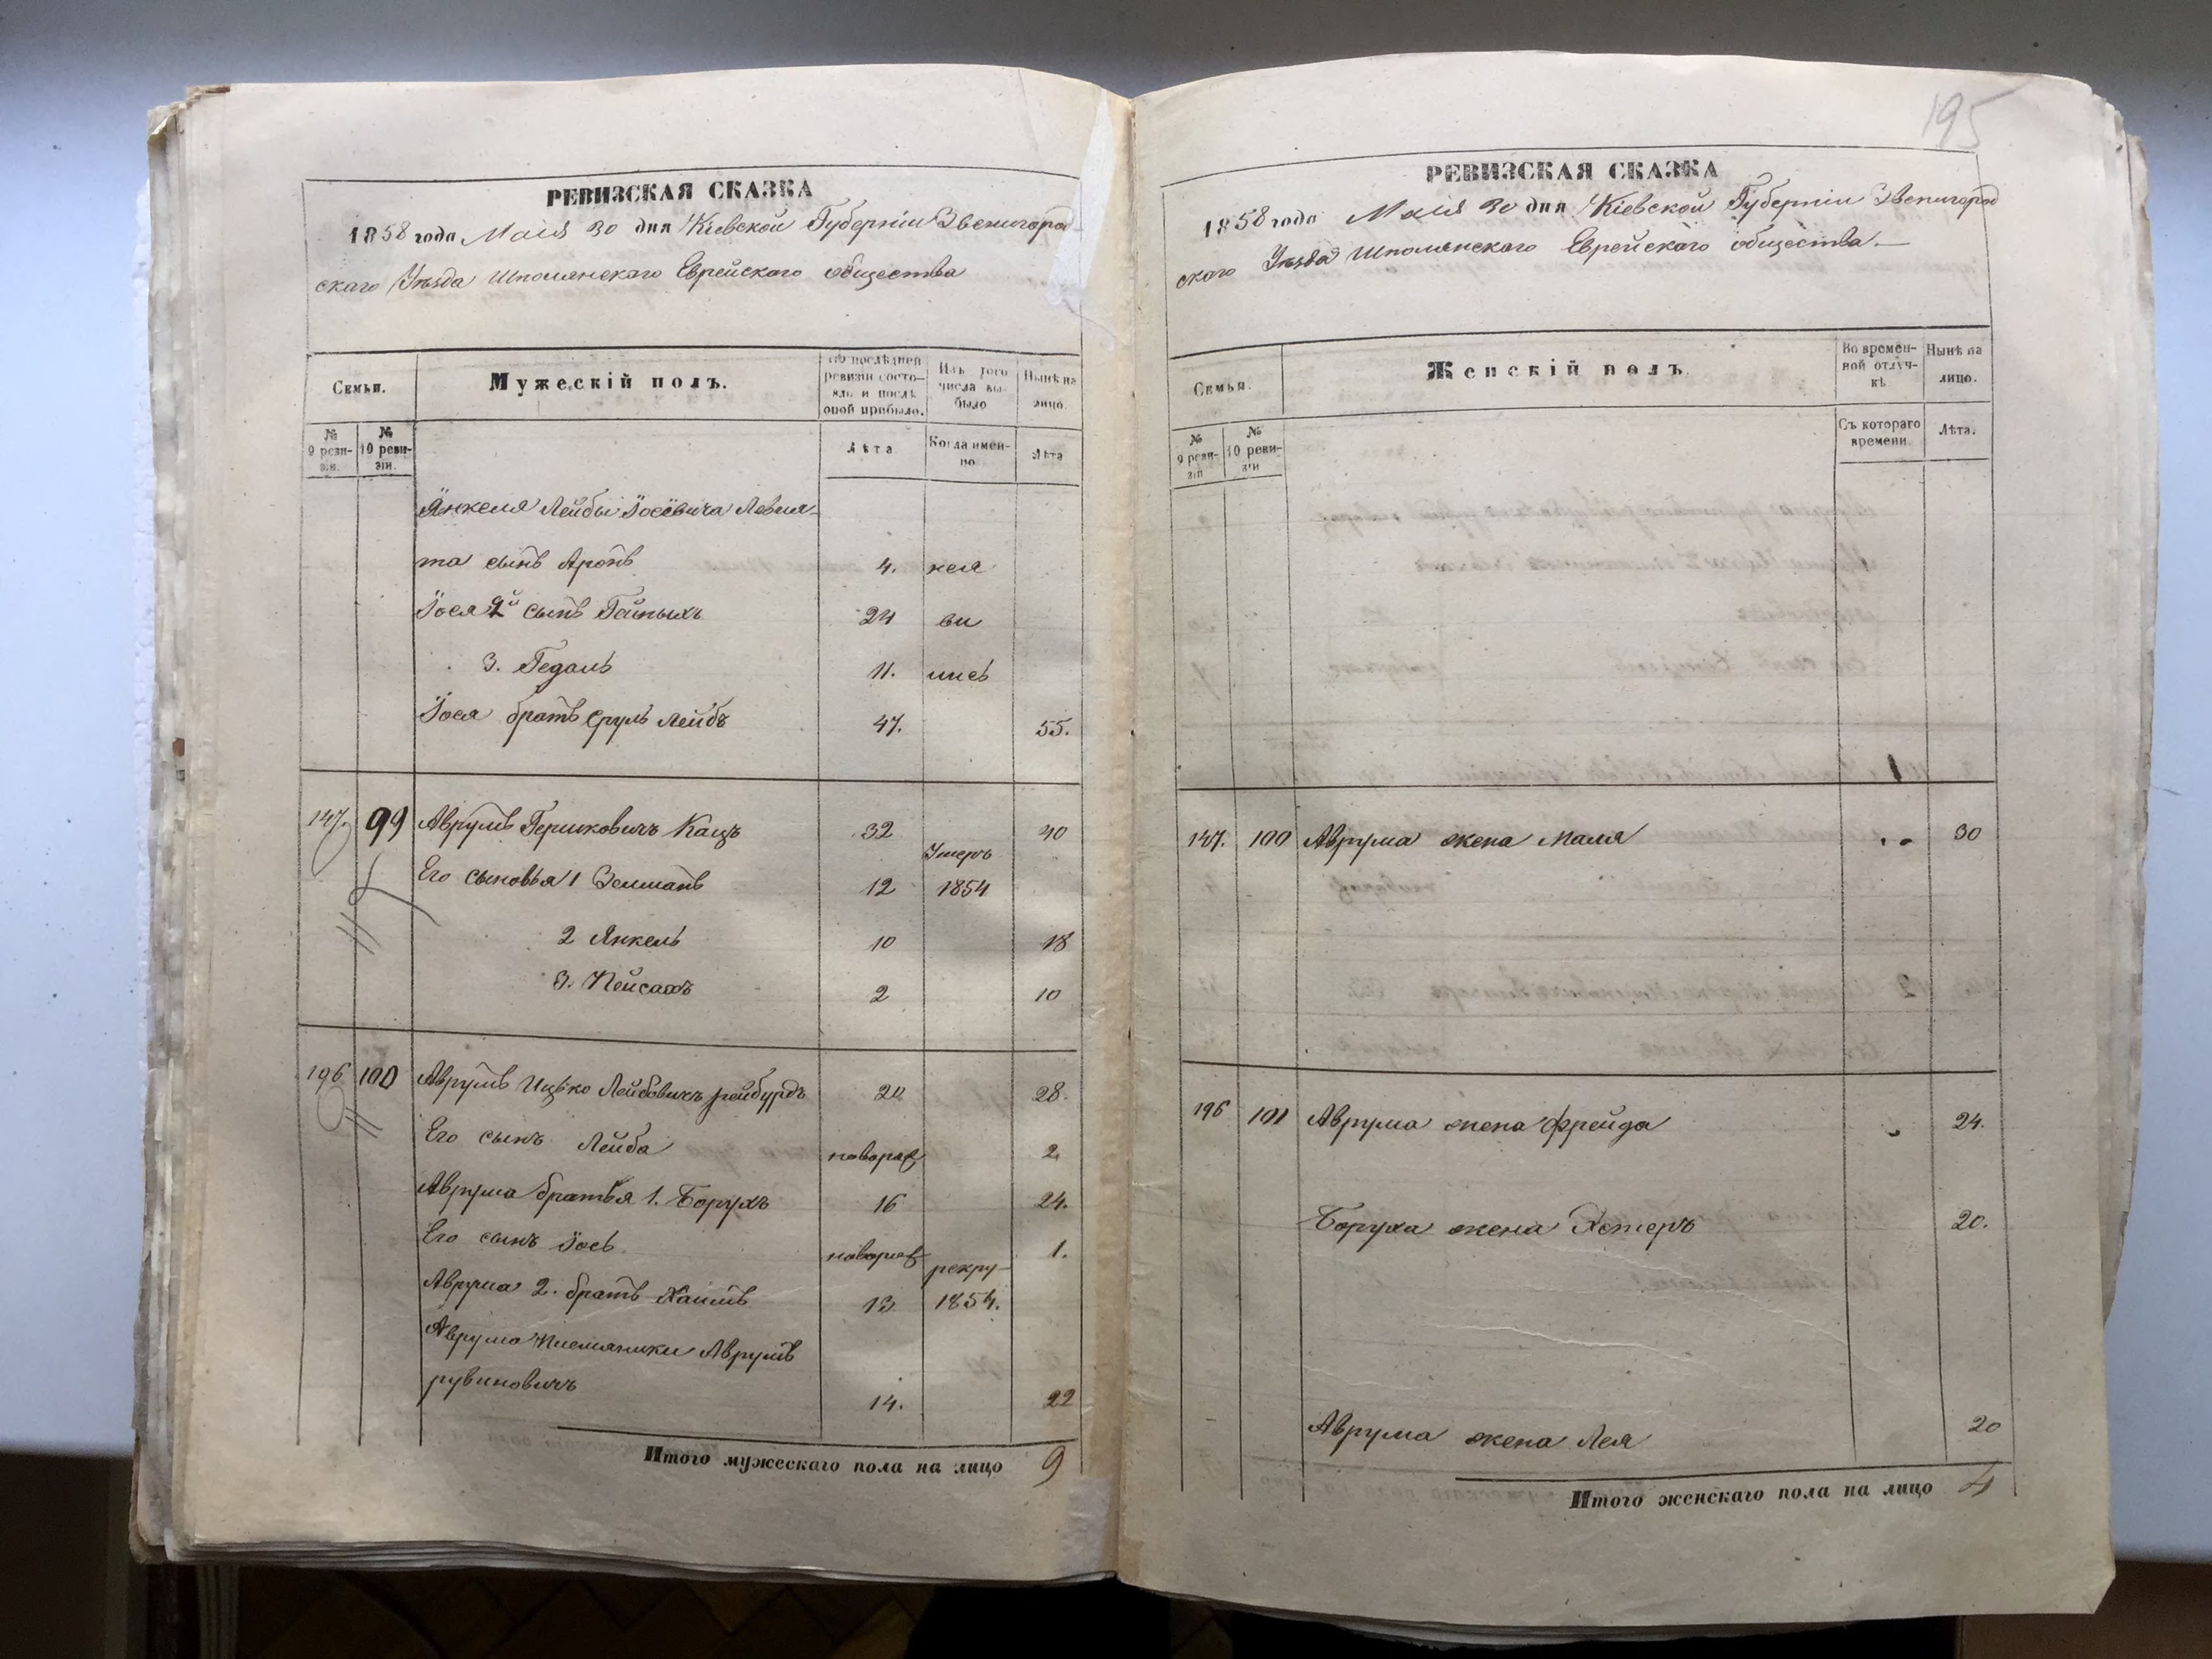 РЕВИЗСКАЯ СКАЗКА
1858 года Маія 30 дня Кіевской Губерніи Звенигород
скаго Уѣзда Шполянскаго Еврейскаго общества
Семьи.
Мужескій полъ.
По послѣдней ревизіи состо-яло и послѣ оной прибыло.
Изъ того числа вы-было
Нынѣ на лицо.
№ 9 реви-зіи.
№ 10 реви-зіи.
Лѣта
Когда имен-но
Лѣта
Янкеля Лейбы Іосевича Левия-
та сынъ Аронъ 4. нея
Іося 2й сынъ 24 ви
3. Гедаль 11. лись
Іося братъ Сруль Лейбъ 47. 55.
147. 99 Аврумъ Гершковичъ Кацъ 32 40
Умеръ
Его сыновья 1 Зельманъ 12 1854
2 Янкель 10 18
3. Пейсахъ 2 10
196 100 Аврумъ Ицько Лейбовичъ 20 28.
Его сынъ Лейба новорож 2
Аврума братья 1. Борухъ 16 24.
Его сынъ Іось новорож 1.
рекру-
Аврума 2. братъ Хаимъ 13 1854.
Аврума племяники Аврумъ
рувиновичъ 14. 22
Итого мужескаго пола на лицо 9
195
РЕВИЗСКАЯ СКАЗКА
1858 года Маія 30 дня Кіевской Губерніи Звенигород
скаго Уѣзда Шполянскаго Еврейскаго общества.
Семьи.
Женскій полъ.
Во времен-ной отлуч-кѣ
Нынѣ на лицо.
№ 9 реви-зіи
№ 10 реви-зіи
Съ котораго времени.
Лѣта.
147. 100 Аврума жена Маля 30
196 101 Аврума жена Фрейда 24.
Боруха жена Эстеръ 20.
Аврума жена Лея 20
Итого женскаго пола на лицо 4